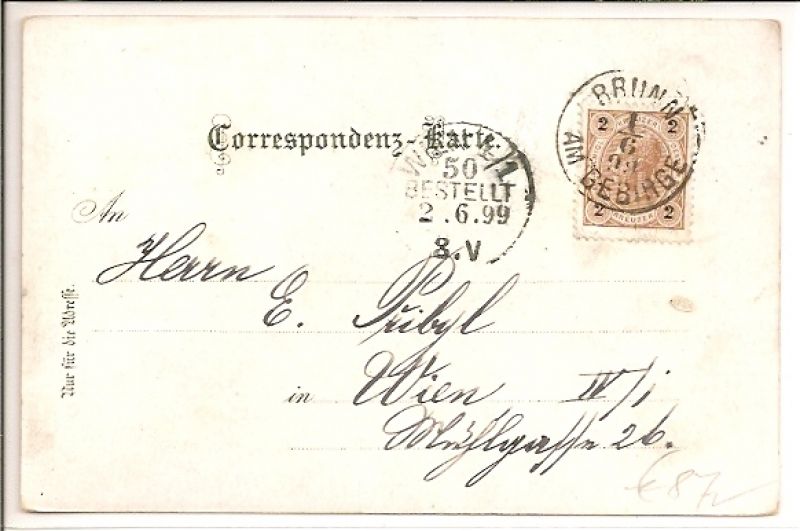 Correspondenz-Karte.
BRUNN
1/6
99
AM GEBIRGE
2 2
2 KREUZER 2
WIEN 4/1
50
BESTELLT
2.6.99
8.V
An
Herrn
E. Přibyl
in Wien IV/1
Mühlgasse 26.
Nur für die Adresse.